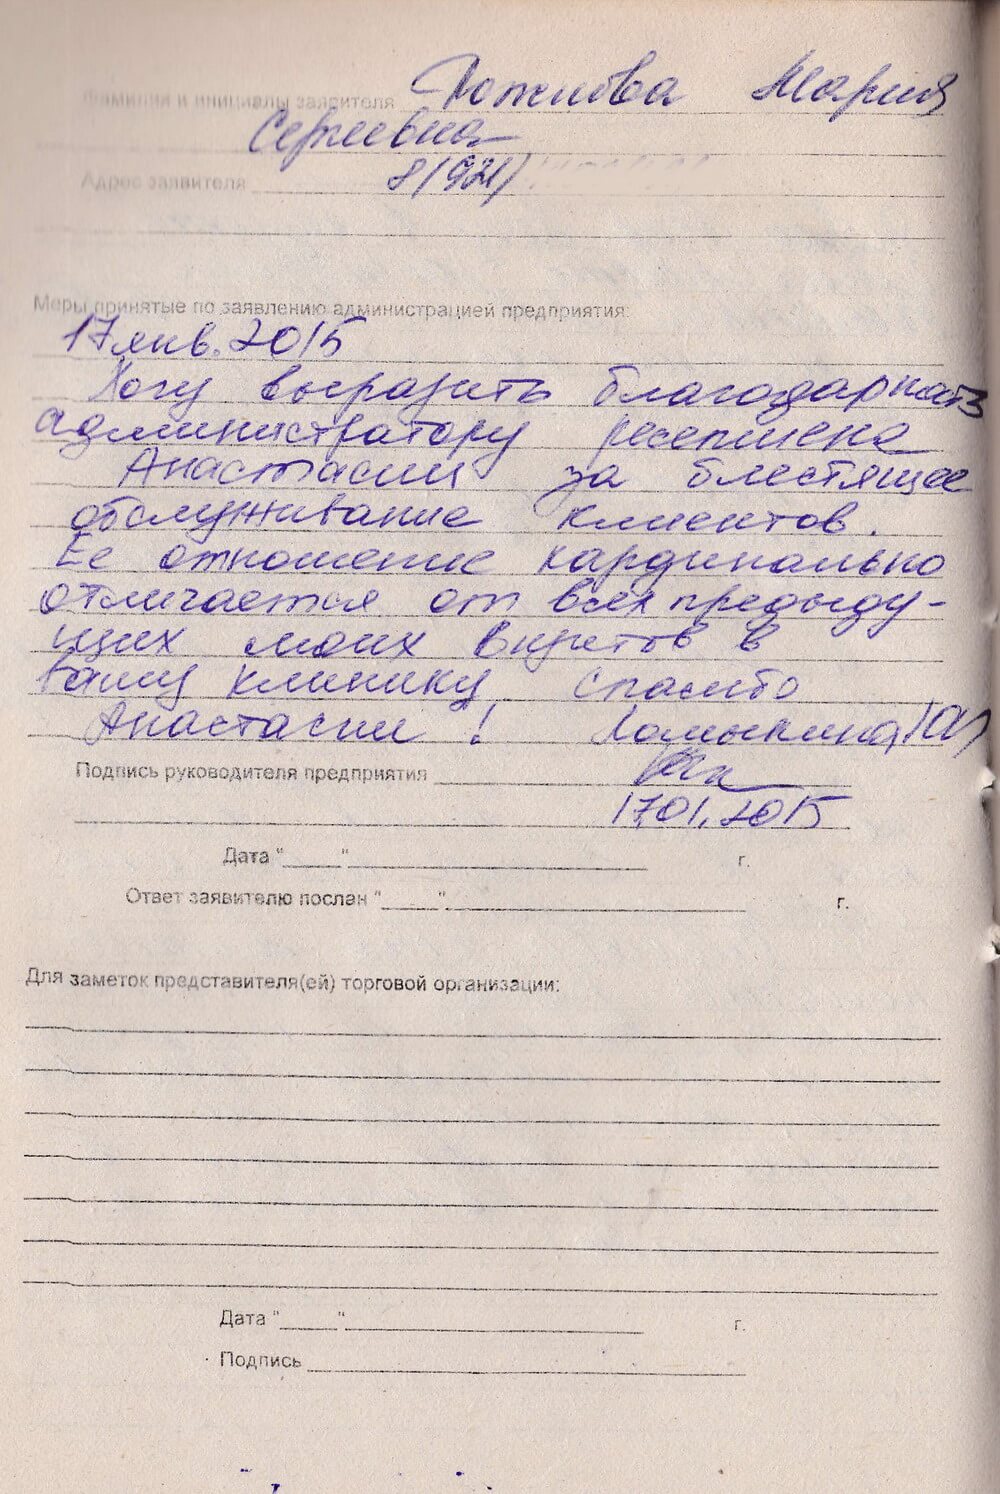 Фамилия и инициалы заявителя Мария
Сергеевна
Адрес заявителя 8(921)
Меры принятые по заявлению администрацией предприятия:
17 янв. 2015
Хочу выразить благодарность
администратору ресепшена
Анастасии за блестящее
обслуживание клиентов.
Ее отношение кардинально
отличается от всех предыду-
щих моих визитов в
вашу клинику. Спасибо
Анастасии!
Подпись руководителя предприятия
17.01.2015
Дата "_____" г.
Ответ заявителю послан "_____" г.
Для заметок представителя(ей) торговой организации:
Дата "_____" г.
Подпись